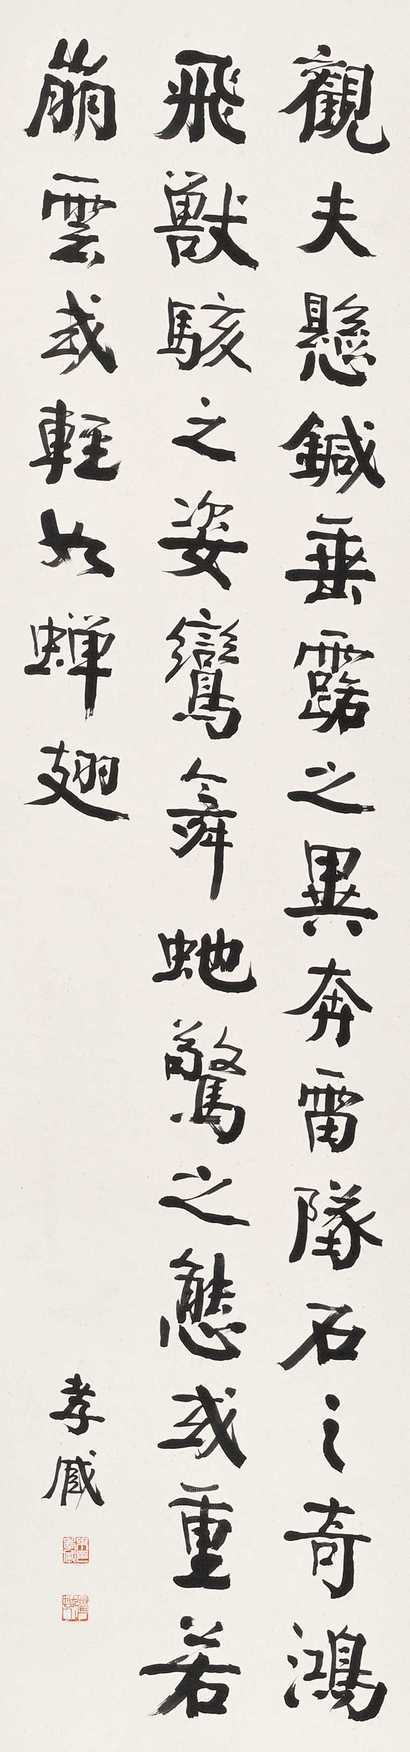 觀夫懸鍼垂露之異奔雷隊石之奇鴻
飛獸駭之姿鸞舞虵驚之態或重若
崩雲或輕如蟬翅
孝臧